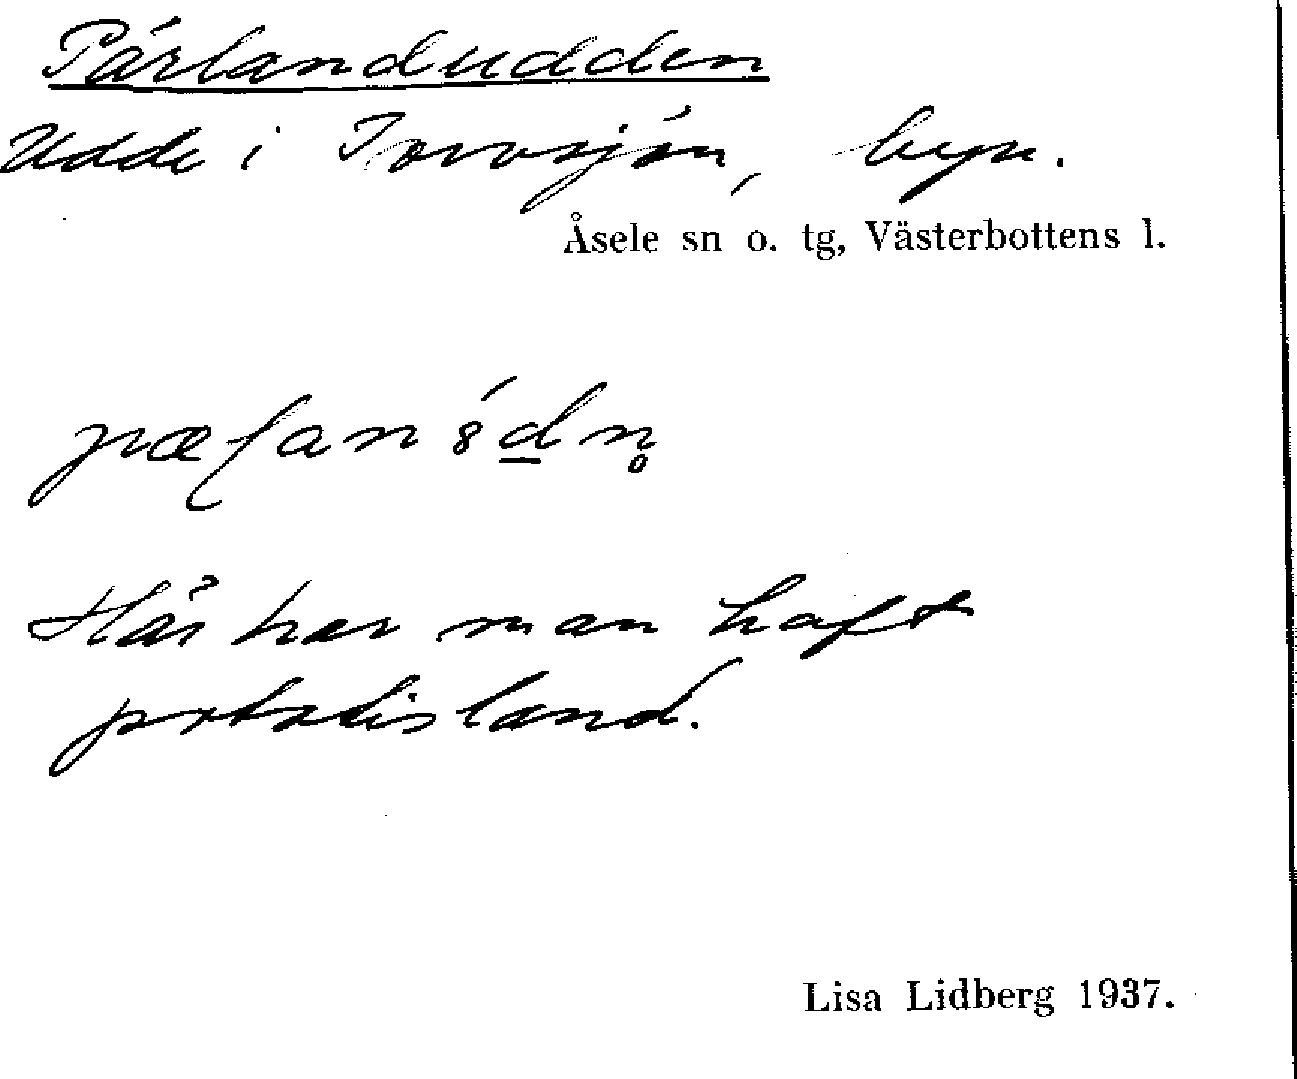 Pärlandudden
Udde i Torvsjön, byn.
Åsele sn o. tg, Västerbottens l.
Här har man haft
potatisland.
Lisa Lidberg 1937.